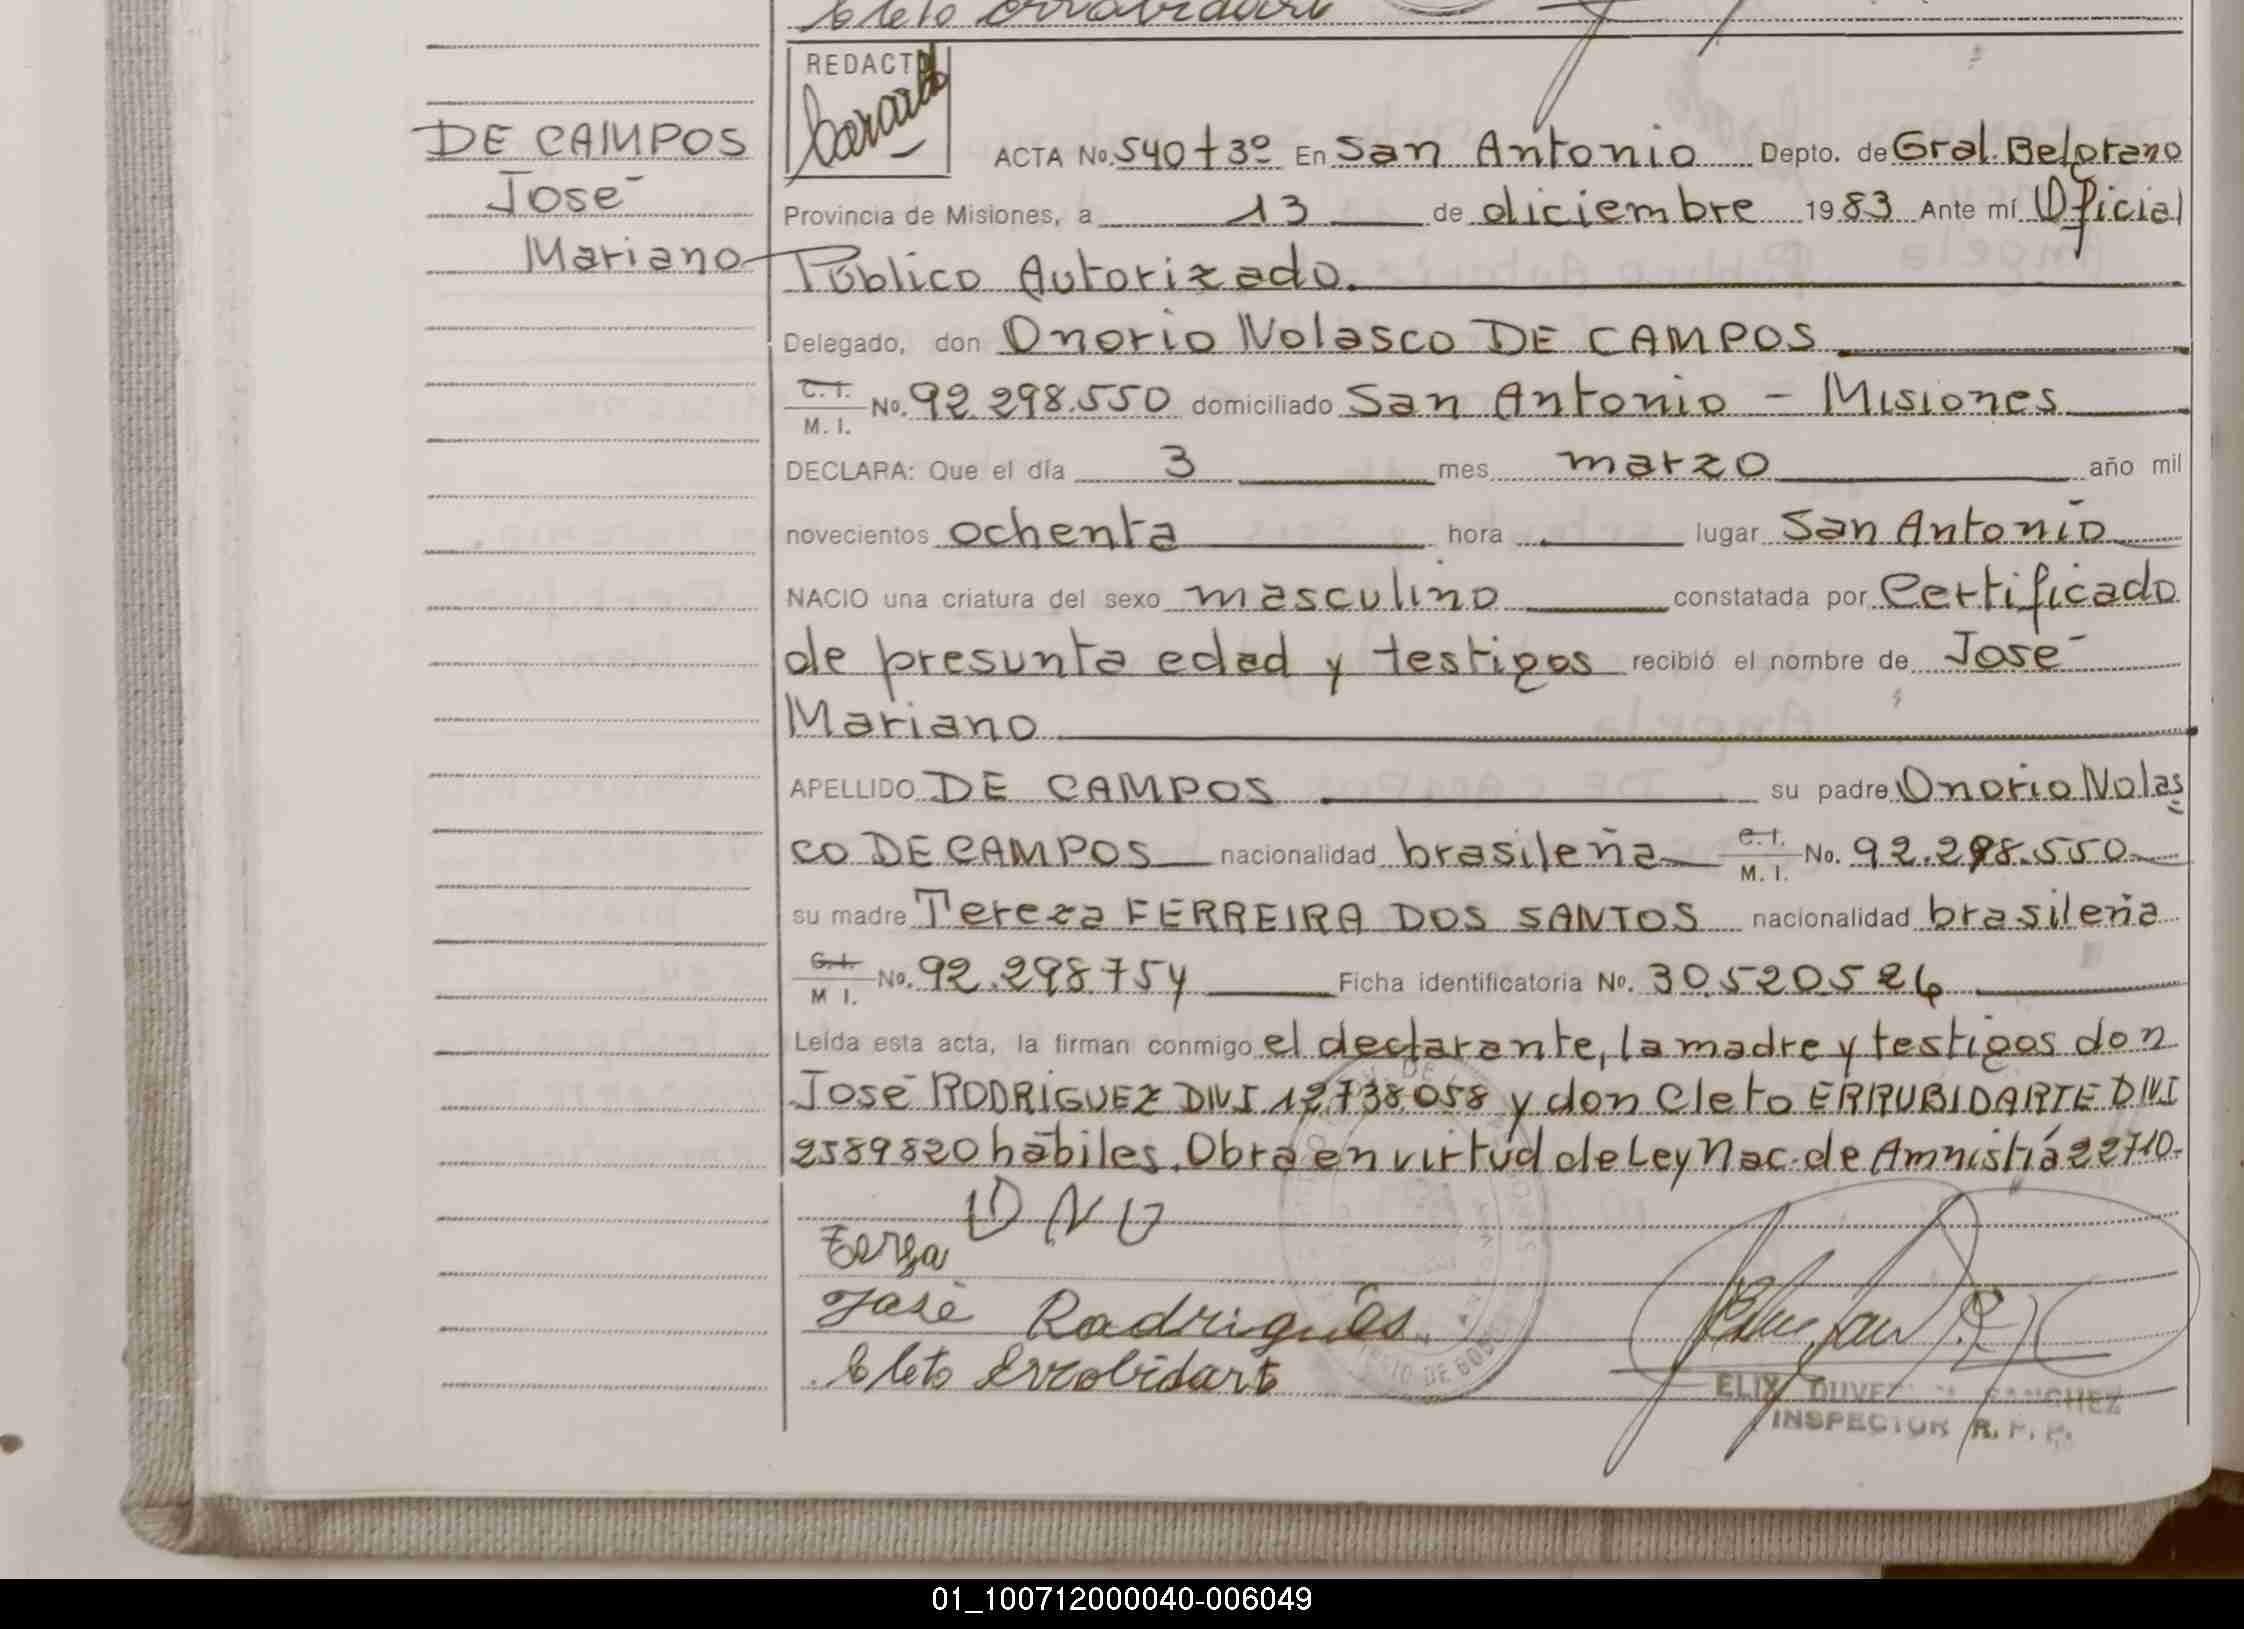 Cleto Errobidart
REDACTO
DE CAMPOS
José
Mariano
ACTA No. 540 t 3º En San Antonio Depto. de Gral. Belgrano
Provincia de Misiones, a 13 de diciembre 1983 Ante mí Oficial
Público Autorizado.
Delegado, don Onorio Nolasco DE CAMPOS
C.I. M. I. No. 92.298.550 domiciliado San Antonio - Misiones
DECLARA: Que el día 3 mes marzo año mil
novecientos ochenta hora lugar San Antonio
NACIO una criatura del sexo masculino constatada por Certificado
de presunta edad y testigos recibió el nombre de José
Mariano
APELLIDO DE CAMPOS su padre Onorio Nolas
co DE CAMPOS nacionalidad brasileña C.I. M. I. No. 92.298.550
su madre Tereza FERREIRA DOS SANTOS nacionalidad brasileña
C.I. M I. No. 92.298.754 Ficha identificatoria No. 30.520.526
Leída esta acta, la firman conmigo el declarante, la madre y testigos don
José RODRIGUEZ DNI 12738.058 y don Cleto ERRUBIDARTE DNI
2589820 hábiles. Obra en virtud de Ley Nac. de Amnistiá 22710.-
O N O
Terza
José Rodriguês
Cleto Errobidart
ELIX SANCHEZ
INSPECTOR R. P. P.
01_100712000040-006049